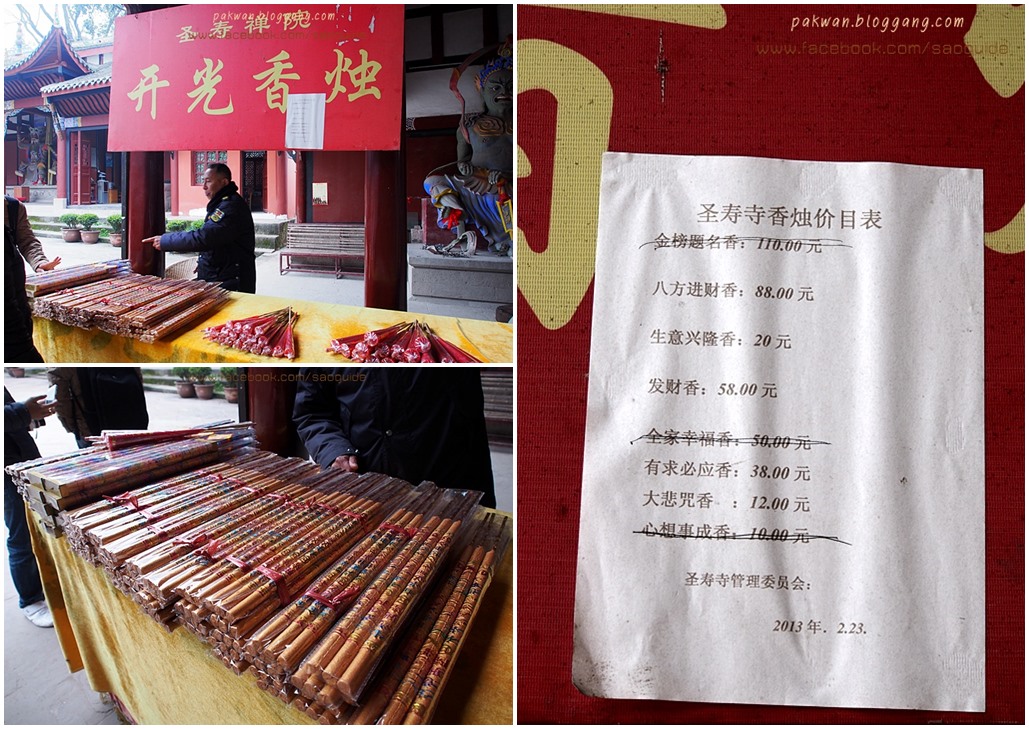 pakwan.bloggang.com
www.facebook.com/saoguide
圣寿禅院
开光香烛
www.facebook.com/saoguide
pakwan.bloggang.com
www.facebook.com/saoguide
圣寿寺香烛价目表
金榜题名香：110.00 元
八方进财香：88.00 元
生意兴隆香：20 元
发财香：58.00 元
全家幸福香：50.00 元
有求必应香：38.00 元
大悲咒香 ：12.00 元
心想事成香：10.00 元
圣寿寺管理委员会：
2013 年．2.23.